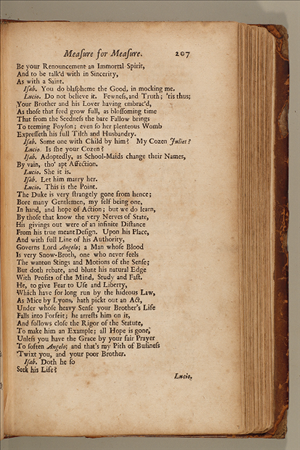 Measure for Measure. 207
Be your Renouncement an Immortal Spirit,
And to be talk'd with in Sincerity,
As with a Saint.
Isab. You do blaspheme the Good, in mocking me.
Lucio. Do not believe it. Fewness, and Truth; 'tis thus;
Your Brother and his Lover having embrac'd,
As those that feed grow full, as blossoming time
That from the Seedness the bare Fallow brings
To teeming Foyson; even so her plenteous Womb
Expresseth his full Tilth and Husbandry.
Isab. Some one with Child by him? My Cozen Juliet?
Lucio. Is she your Cozen?
Isab. Adoptedly, as School-Maids change their Names,
By vain, tho' apt Affection.
Lucio. She it is.
Isab. Let him marry her.
Lucio. This is the Point.
The Duke is very strangely gone from hence;
Bore many Gentlemen, my self being one,
In hand, and hope of Action; but we do learn,
By those that know the very Nerves of State,
His givings out were of an infinite Distance
From his true meant Design. Upon his Place,
And with full Line of his Authority,
Governs Lord Angelo; a Man whose Blood
Is very Snow-Broth, one who never feels
The wanton Stings and Motions of the Sense;
But doth rebate, and blunt his natural Edge
With Profits of the Mind, Study and Fast.
He, to give Fear to Use and Liberty,
Which have for long run by the hideous Law,
As Mice by Lyons, hath pickt out an Act,
Under whose heavy Sense your Brother's Life
Falls into Forfeit; he arrests him on it,
And follows close the Rigor of the Statute,
To make him an Example; all Hope is gone,
Unless you have the Grace by your fair Prayer
To soften Angelo; and that's my Pith of Business
'Twixt you, and your poor Brother.
Isab. Doth he so
Seek his Life?
Lucio,